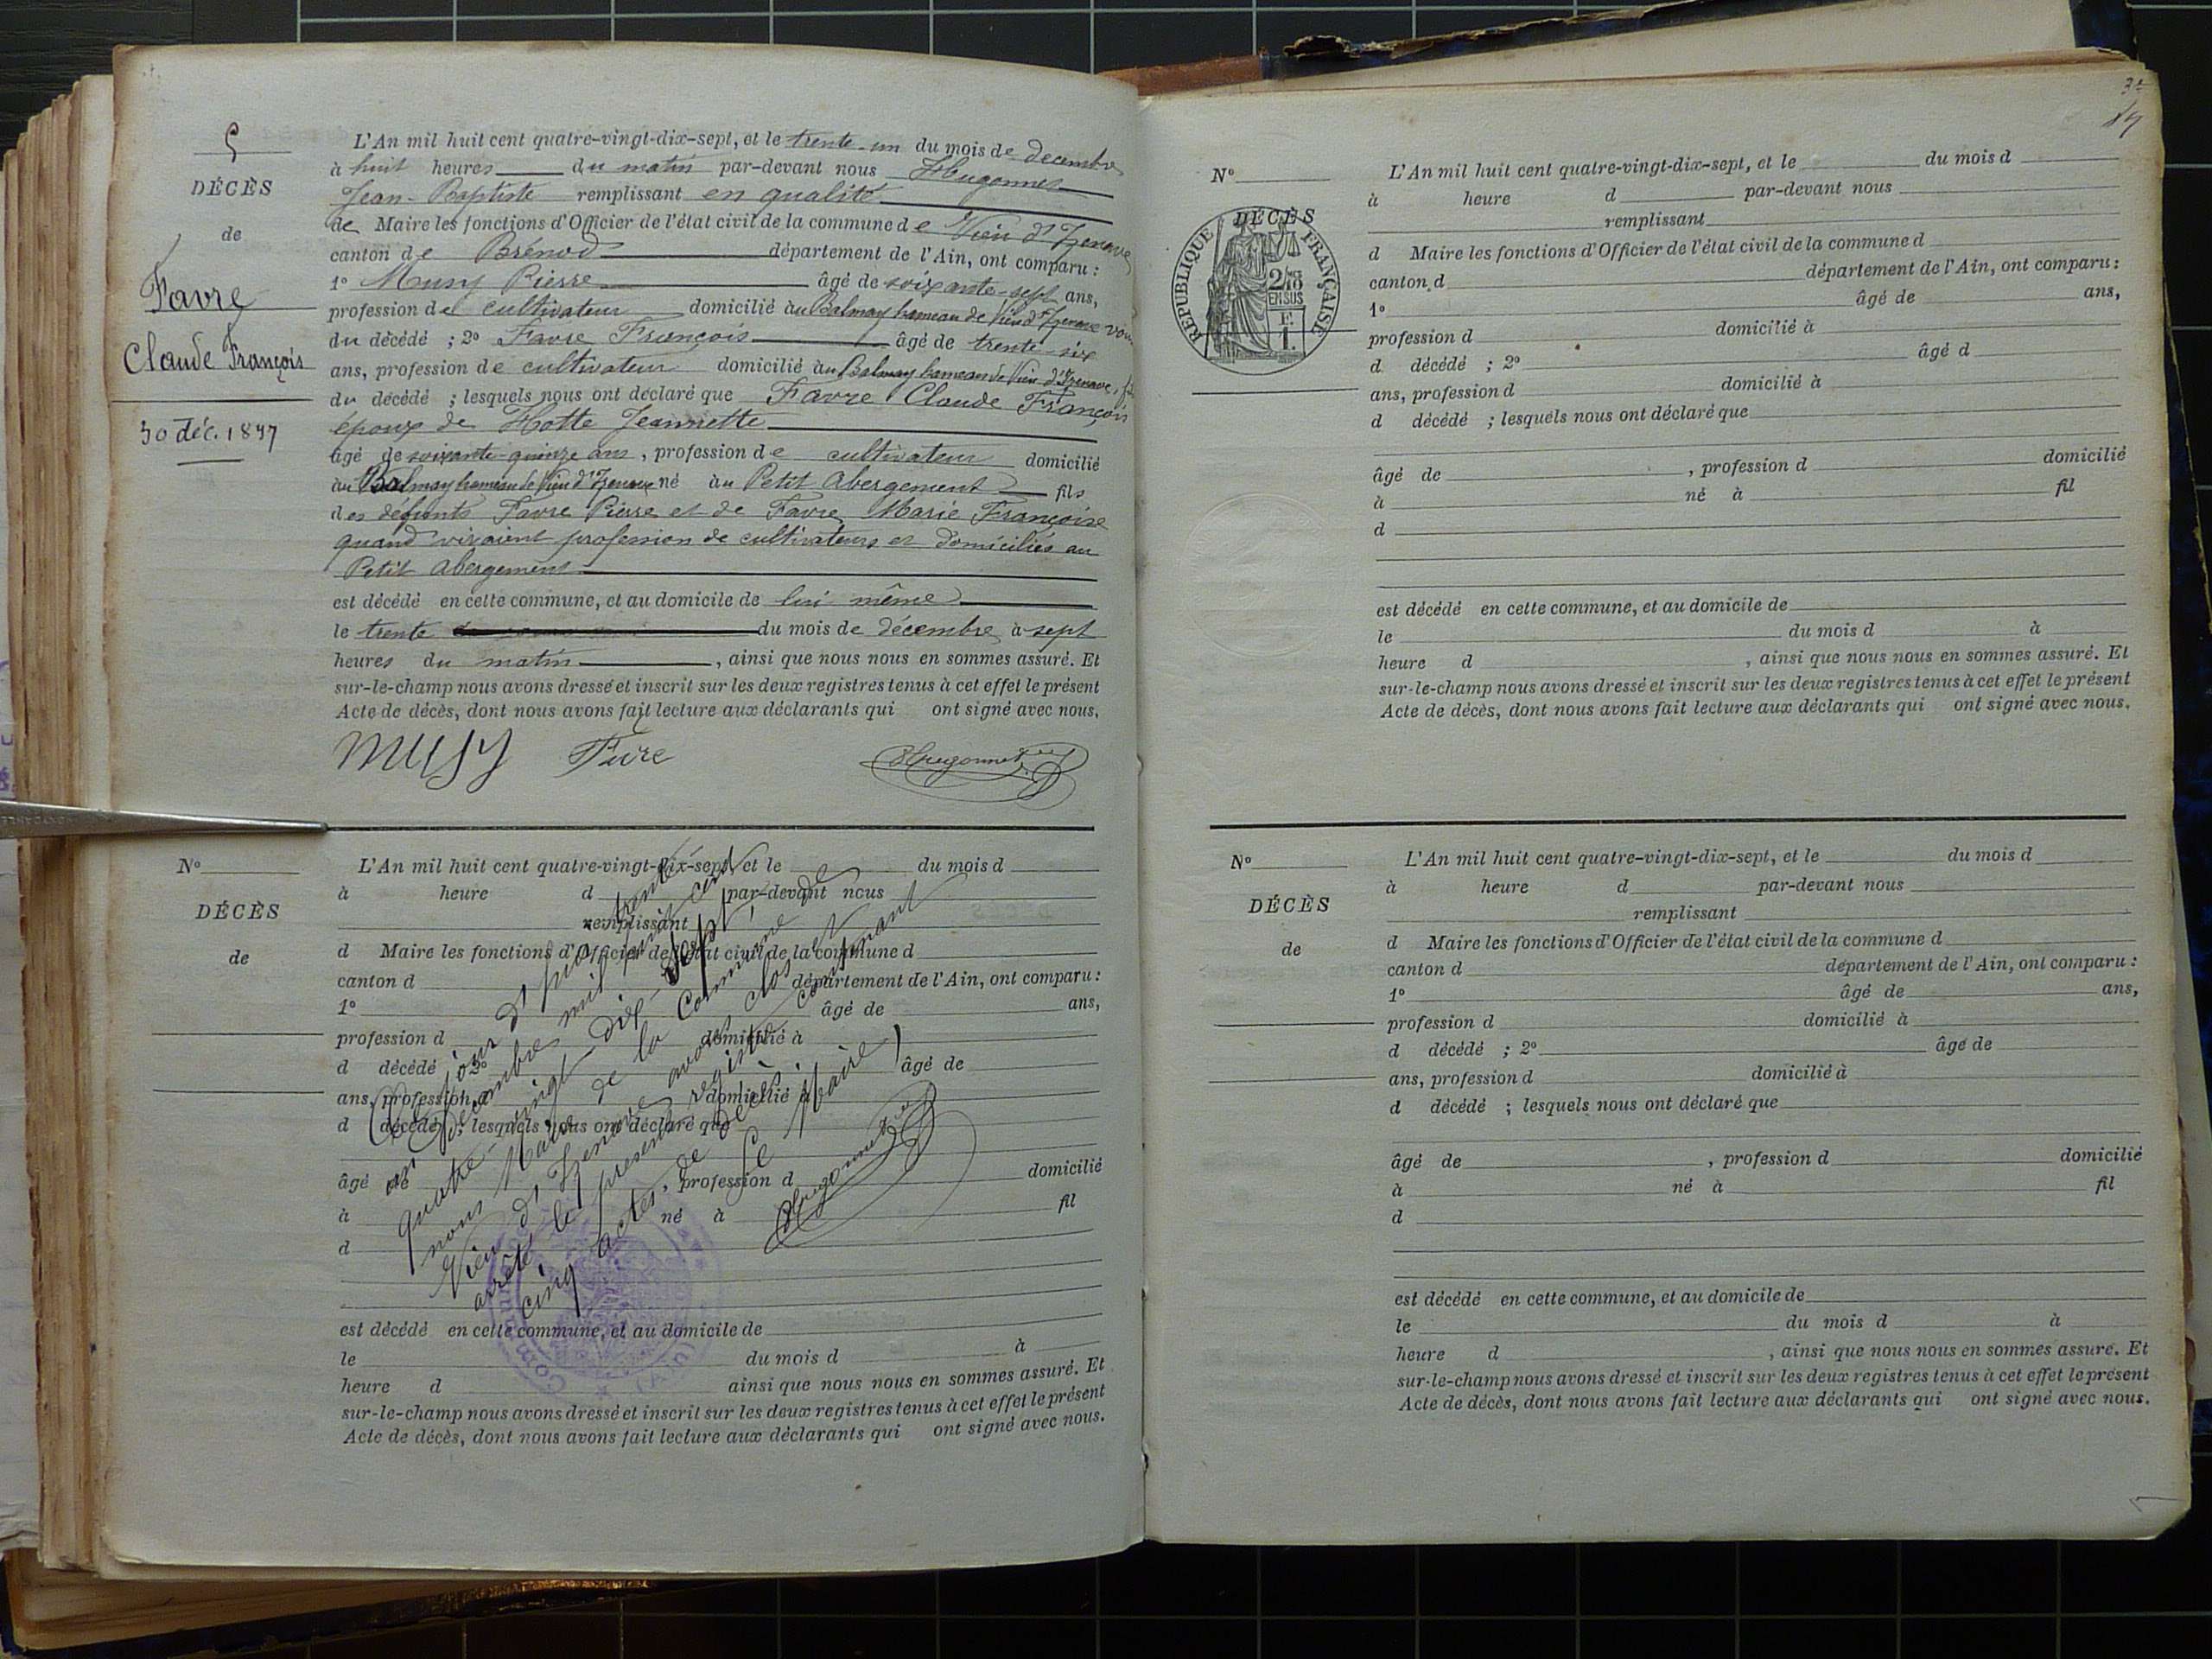 5
DÉCÈS
de
Favre
Claude François
30 déc. 1897
L'An mil huit cent quatre-vingt-dix-sept, et le trente-un du mois de decembre
à huit heures du matin par-devant nous Hugonnet
Jean-Baptiste remplissant en qualité
de Maire les fonctions d'Officier de l'état civil de la commune de Vieu d'Izenave
canton de Brénod département de l'Ain, ont comparu :
1º Musy Pierre âgé de soixante-sept ans,
profession de cultivateur domicilié au Balmay hameau de Vieu d'Izenave
du décédé ; 2º Favre François âgé de trente-six
ans, profession de cultivateur domicilié au Balmay hameau de Vieu d'Izenave,
du décédé ; lesquels nous ont déclaré que Favre Claude François
époux de Hotte Jeannette
âgé de soixante-quinze ans, profession de cultivateur domicilié
au Balmay hameau de Vieu d'Izenave né au Petit Abergement fils
des défunts Favre Pierre et de Favre Marie Françoise
quand vivaient profession de cultivateurs et domiciliés au
Petit Abergement
est décédé en cette commune, et au domicile de lui même
le trente du mois de décembre à sept
heures du matin, ainsi que nous nous en sommes assuré. Et
sur-le-champ nous avons dressé et inscrit sur les deux registres tenus à cet effet le présent
Acte de décès, dont nous avons fait lecture aux déclarants qui ont signé avec nous.
MUSY Favre Hugonnet
Nº
DÉCÈS
de
L'An mil huit cent quatre-vingt-dix-sept, et le du mois d
à heure d par-devant nous
remplissant
d Maire les fonctions d'Officier de l'état civil de la commune d
canton d département de l'Ain, ont comparu :
1º âgé de ans,
profession d domicilié à
d décédé ; 2º âgé de
ans, profession d domicilié à
d décédé ; lesquels nous ont déclaré que
âgé de , profession d domicilié
à né à fil
d
est décédé en cette commune, et au domicile de
le du mois d à
heure d ainsi que nous nous en sommes assuré. Et
sur-le-champ nous avons dressé et inscrit sur les deux registres tenus à cet effet le présent
Acte de décès, dont nous avons fait lecture aux déclarants qui ont signé avec nous.
Ce jour d'hui trente
un décembre mil huit cent
quatre-vingt-dix-sept,
nous Maire de la Commune de
Vieu d'Izenave avons clos et
arrêté le présent registre contenant
cinq actes de décès.
Le Maire
Hugonnet
Commune
(AIN)
Nº
DÉCÈS
RÉPUBLIQUE FRANÇAISE
2/10
EN SUS
E.
1.
L'An mil huit cent quatre-vingt-dix-sept, et le du mois d
à heure d par-devant nous
remplissant
d Maire les fonctions d'Officier de l'état civil de la commune d
canton d département de l'Ain, ont comparu :
1º âgé de ans,
profession d domicilié à
d décédé ; 2º âgé d
ans, profession d domicilié à
d décédé ; lesquels nous ont déclaré que
âgé de , profession d domicilié
à né à fil
d
est décédé en cette commune, et au domicile de
le du mois d à
heure d , ainsi que nous nous en sommes assuré. Et
sur-le-champ nous avons dressé et inscrit sur les deux registres tenus à cet effet le présent
Acte de décès, dont nous avons fait lecture aux déclarants qui ont signé avec nous.
Nº
DÉCÈS
de
L'An mil huit cent quatre-vingt-dix-sept, et le du mois d
à heure d par-devant nous
remplissant
d Maire les fonctions d'Officier de l'état civil de la commune d
canton d département de l'Ain, ont comparu :
1º âgé de ans,
profession d domicilié à
d décédé ; 2º âgé de
ans, profession d domicilié à
d décédé ; lesquels nous ont déclaré que
âgé de , profession d domicilié
à né à fil
d
est décédé en cette commune, et au domicile de
le du mois d à
heure d , ainsi que nous nous en sommes assuré. Et
sur-le-champ nous avons dressé et inscrit sur les deux registres tenus à cet effet le présent
Acte de décès, dont nous avons fait lecture aux déclarants qui ont signé avec nous.